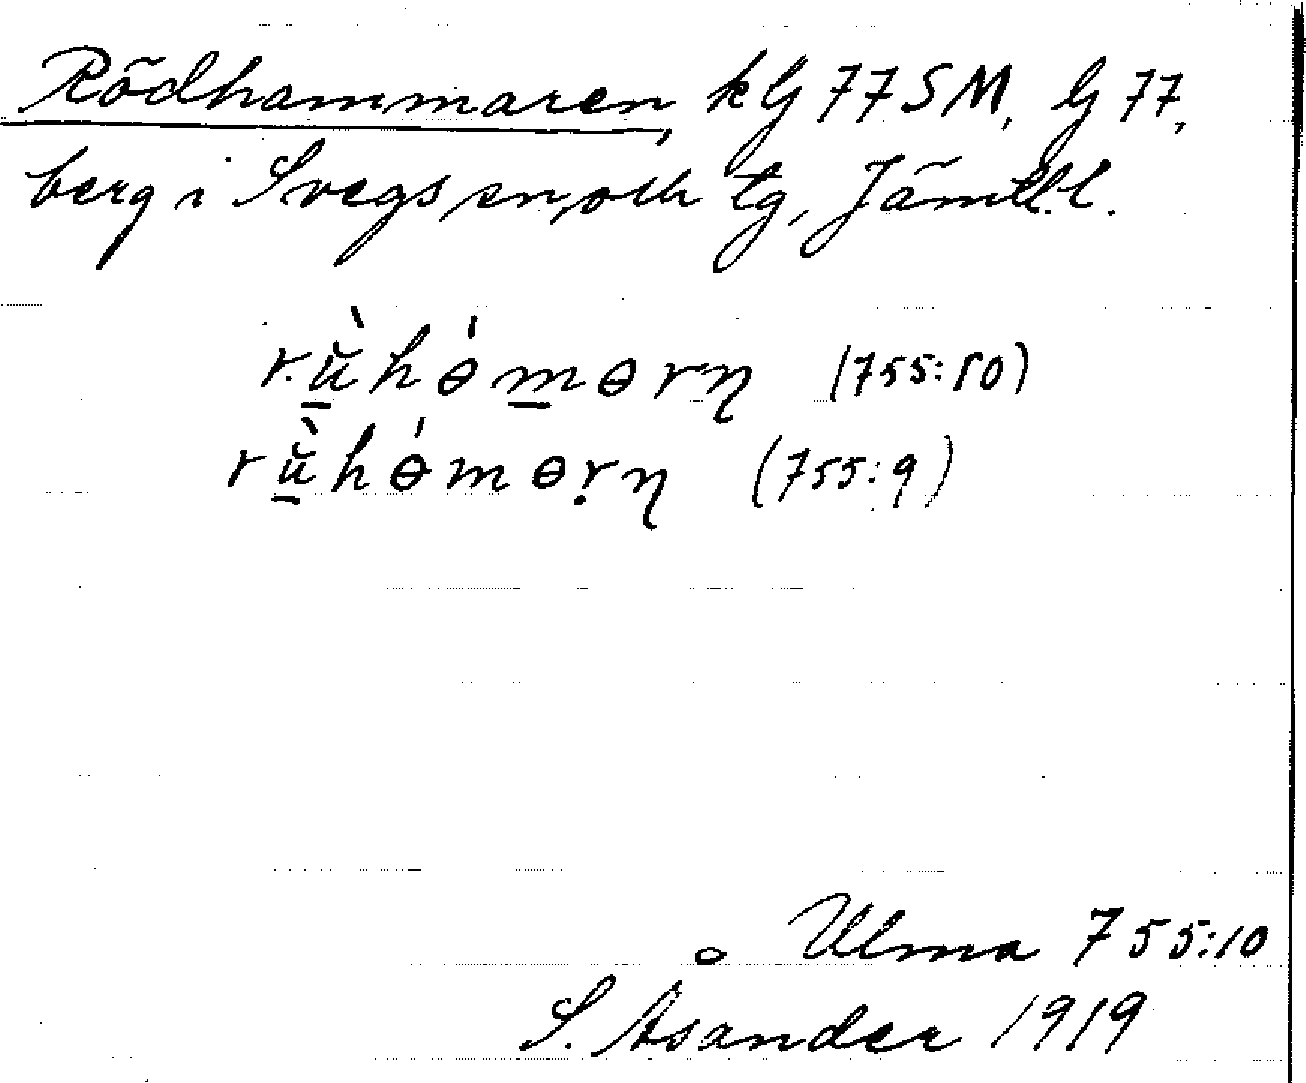 Rödhammaren, kG 77 SM, G 77,
berg i Svegs sn, o. tg, Jämtl. l.
rù̲hɵ́m̲ɵrη (755:10)
rù̲hɵ́mɵṛη (755:9)
Ulma 755:10
S. Åsander 1919